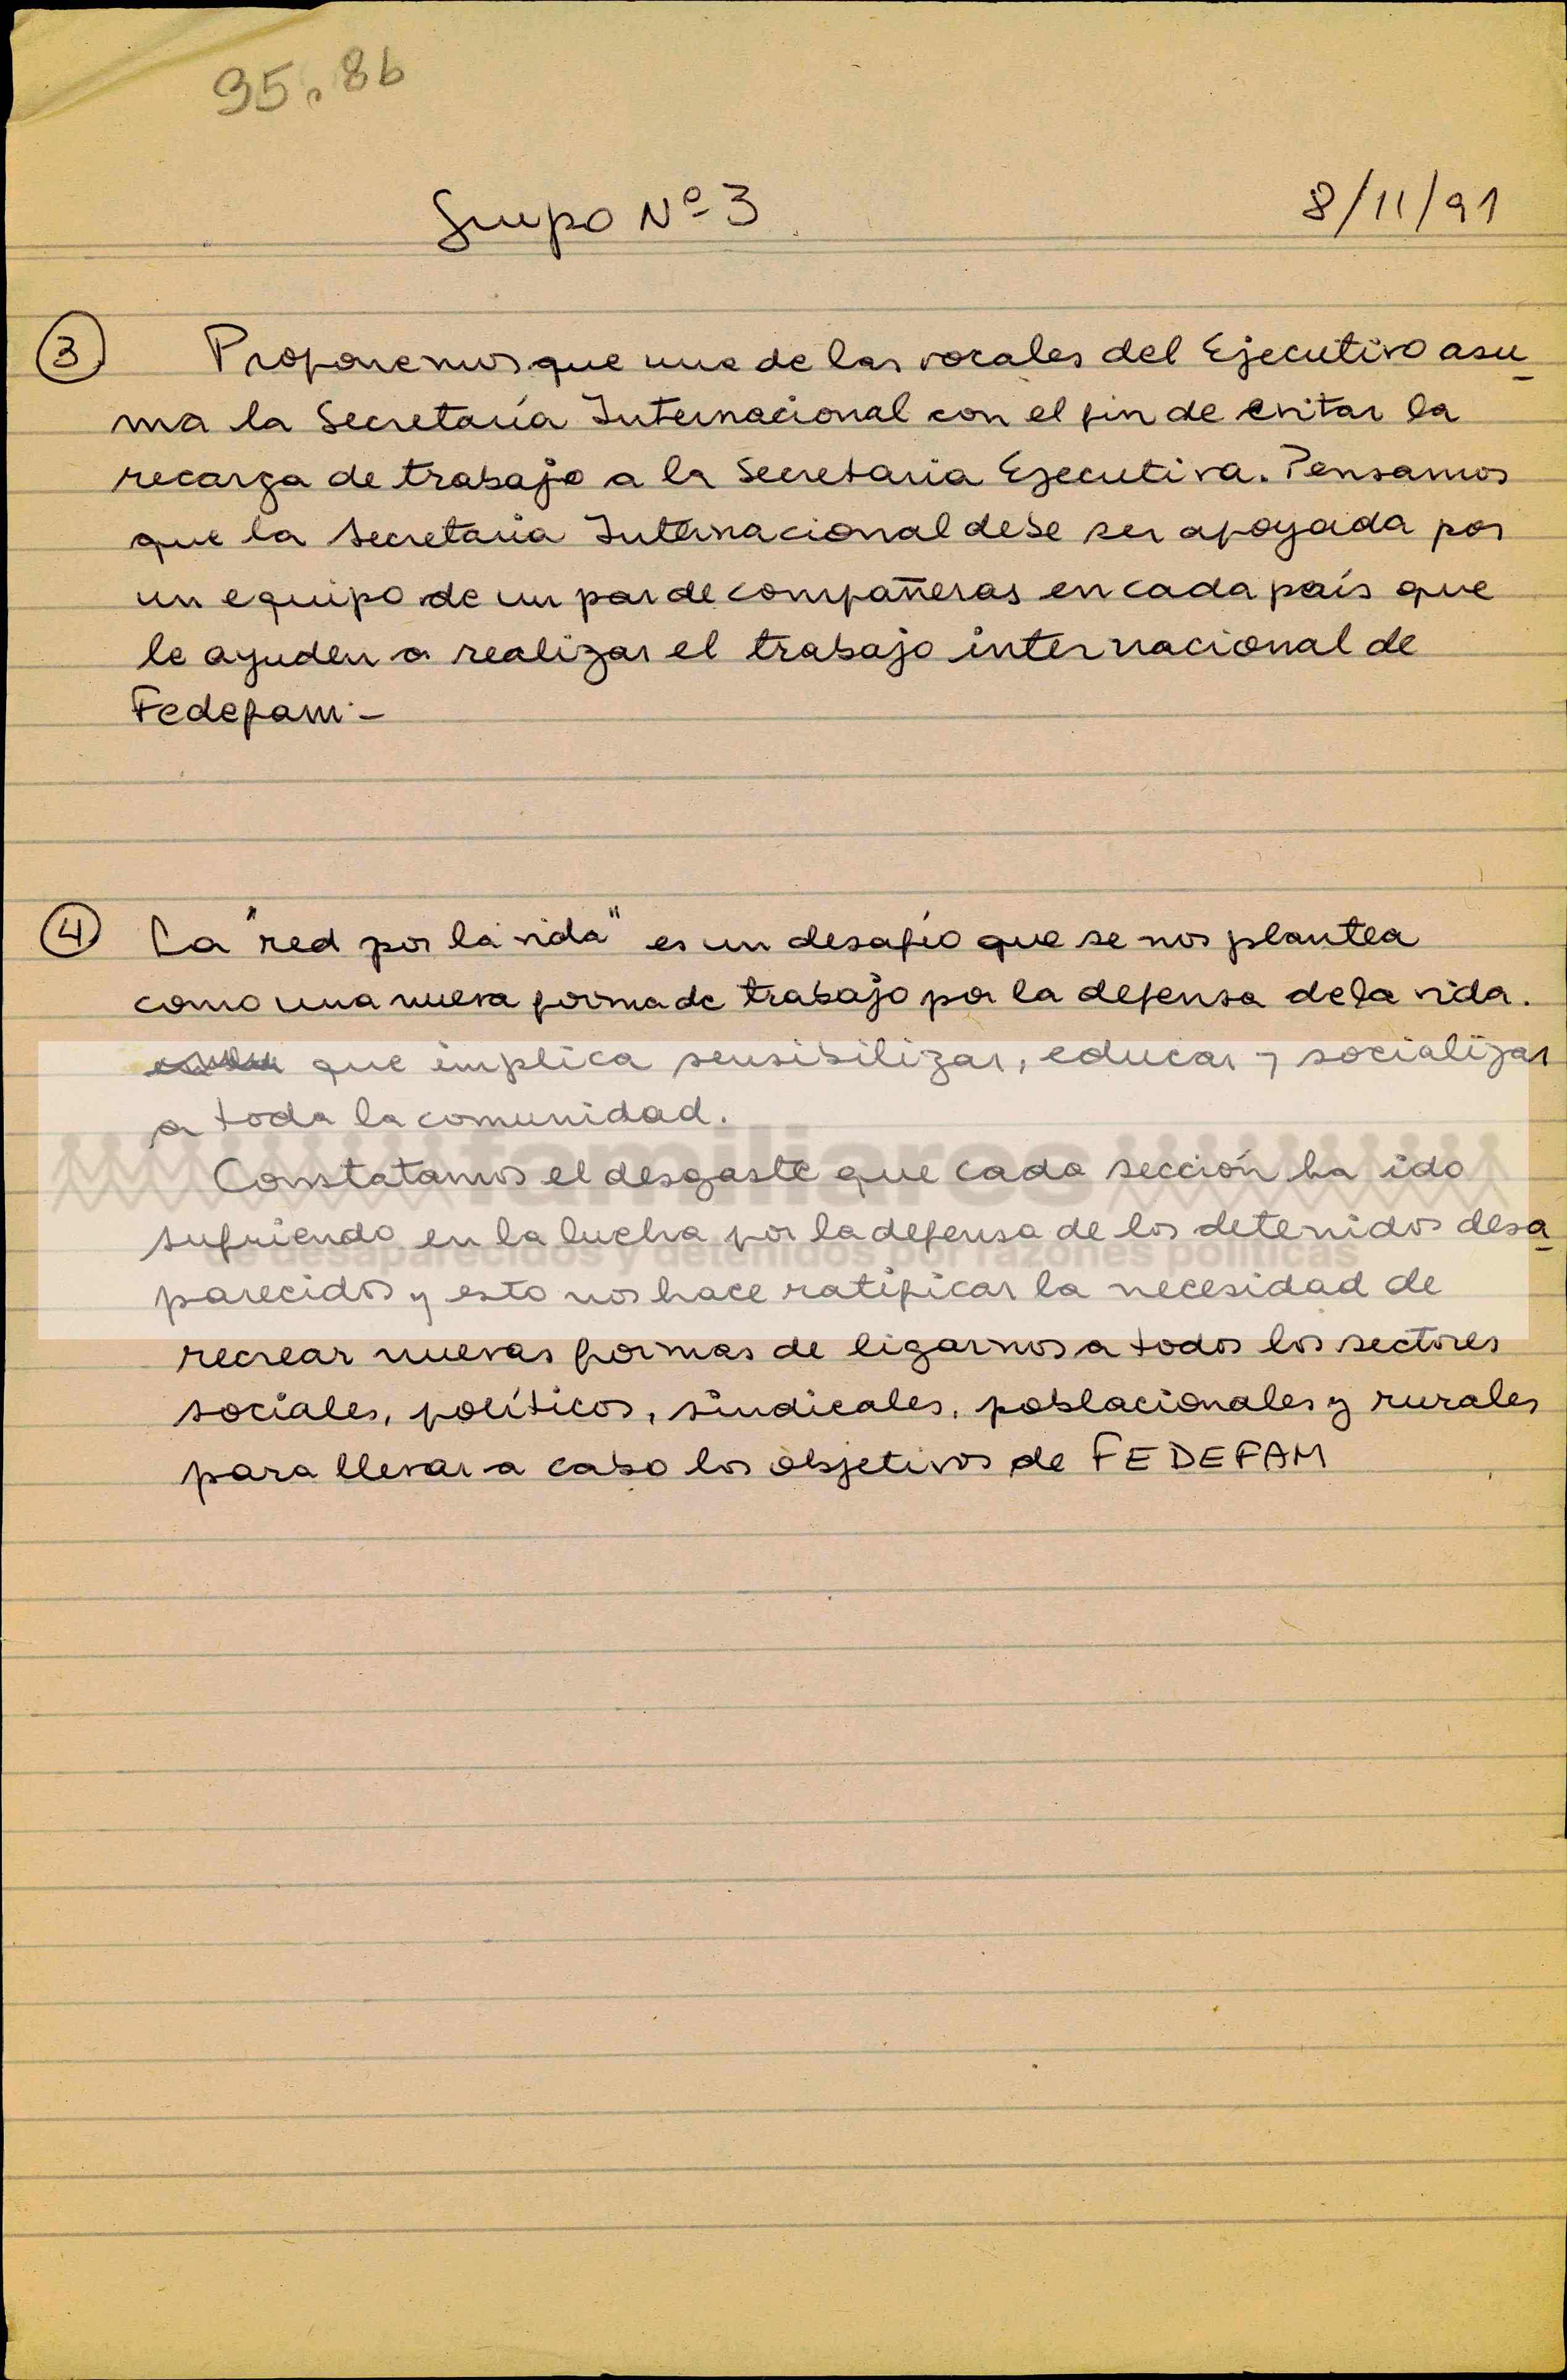 95.86
Grupo Nº 3
8/11/91
3 Proponemos que una de las vocales del Ejecutivo asu
ma la Secretaría Internacional con el fin de evitar la
recarga de trabajo a la Secretaria Ejecutiva. Pensamos
que la secretaria Internacional debe ser apoyada por
un equipo de un par de compañeras en cada país que
le ayuden a realizar el trabajo internacional de
Fedefam.-
4 La "red por la vida" es un desafío que se nos plantea
como una nueva forma de trabajo por la defensa de la vida.
que implica sensibilizar, educar y socializar
a toda la comunidad.
familiares
Constatamos el desgaste que cada sección ha ido
sufriendo en la lucha por la defensa de los detenidos desa
de desaparecidos y detenidos por razones políticas
parecidos y esto nos hace ratificar la necesidad de
recrear nuevas formas de ligarnos a todos los sectores
sociales, políticos, sindicales, poblacionales y rurales
para llevar a cabo los objetivos de FEDEFAM